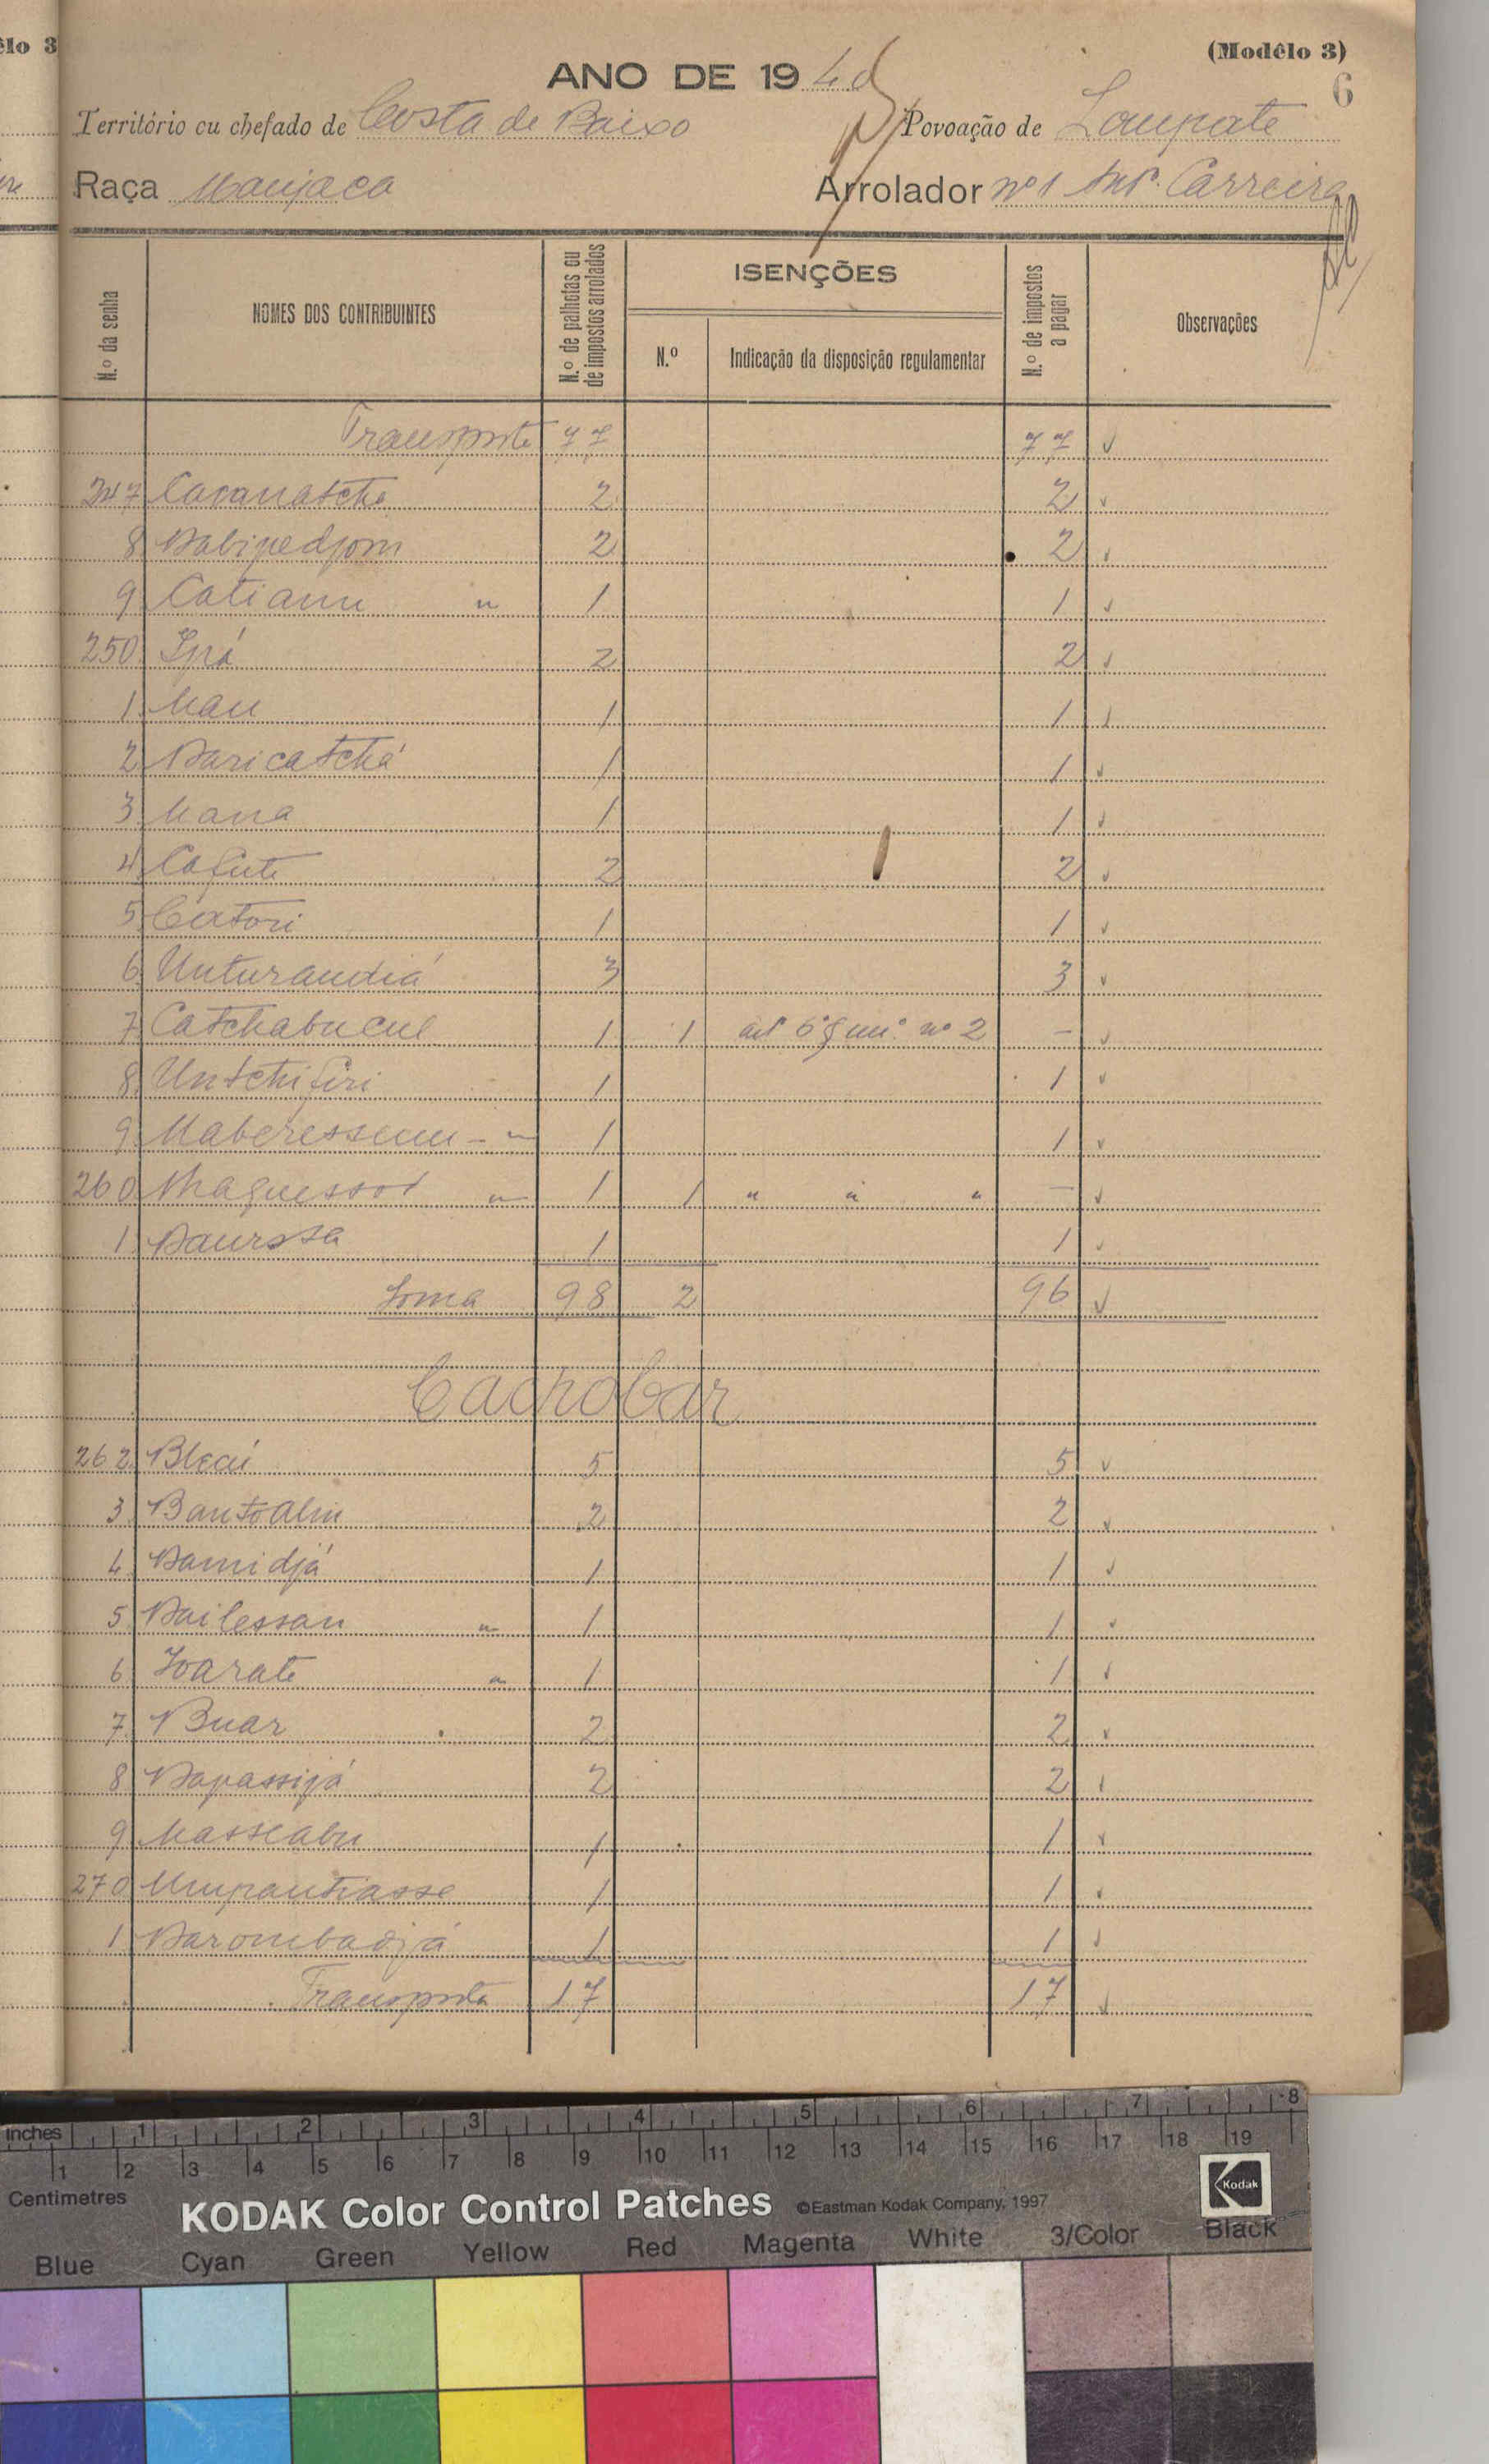 êlo 3
(Modêlo 3)
6
ANO DE 19
Território ou chefado de Costa de Baixo Povoação de Laupate
Raça Manjaca Arrolador nº 1 Carreira
N.º da senha
NOMES DOS CONTRIBUINTES
N.º de palhotas ou de impostos arrolados
ISENÇÕES
N.º
Indicação da disposição regulamentar
N.º de impostos a pagar
Observações
Transporte 77 77 ✓
247 2 2 ✓
8 2 2 ✓
9 Catianu " 1 1 ✓
250 Ipá 2 2 ✓
1 Nau 1 1 ✓
2 Naricatchá 1 1 ✓
3 Nana 1 1 ✓
4 Cafute 2 2 ✓
5 Catori 1 1 ✓
6 Unturandiá 3 3 ✓
7 Catchabucul 1 1 artº 6º § uni.º nº 2 - ✓
8 Untchifiri 1 1 ✓
9 1 1 ✓
260 " 1 1 " " " - ✓
1 Naurssa 1 1 ✓
Soma 98 2 96 ✓
Cachobar
262 Blecú 5 5 ✓
3 Bantoalin 2 2 ✓
4 Namidjá 1 1 ✓
5 Nailessan " 1 1 ✓
6 " 1 1 ✓
7 Buar 2 2 ✓
8 Napassijá 2 2 ✓
9 Nasseabu 1 1 ✓
270 Umpantiasse 1 1 ✓
1 Narombadjá 1 1 ✓
Transporte 17 17 ✓
inches 1 2 3 4 5 6 7 8
1 2 3 4 5 6 7 8 9 10 11 12 13 14 15 16 17 18 19
Centimetres
KODAK Color Control Patches ©Eastman Kodak Company, 1997
Kodak
Blue Cyan Green Yellow Red Magenta White 3/Color Black